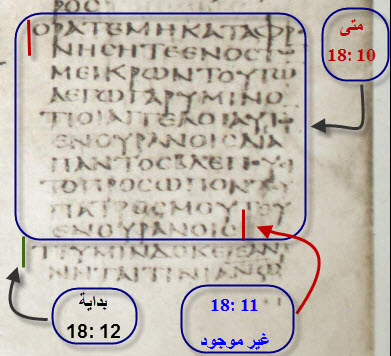 ΡΟϹ
ΟΡΑΤΕΜΗΚΑΤΑΦΡ
ΝΗϹΗΤΕΕΝΟϹΤ
ΜΕΙΚΡΩΝΤΟΥΤΩ
ΛΕΓΩΓΑΡΥΜΙΝΟ
ΤΙΟΙΑΓΓΕΛΟΙΑΥΤ
ΕΝΟΥΡΑΝΟΙϹΔΙΑ
ΠΑΝΤΟϹΒΛΕΠΟΥϹΙ
ΤΟΠΡΟϹΩΠΟΝΤΟΥ
ΠΑΤΡΟϹΜΟΥΤΟΥ
ΕΝΟΥΡΑΝΟΙϹ
ΤΙΥΜΙΝΔΟΚΕΙΕΑΝ
ΝΗΤΑΙΤΙΝΙΑΝΘΡΩ
متى
18: 10
18: 11
غير موجود
بداية
18: 12